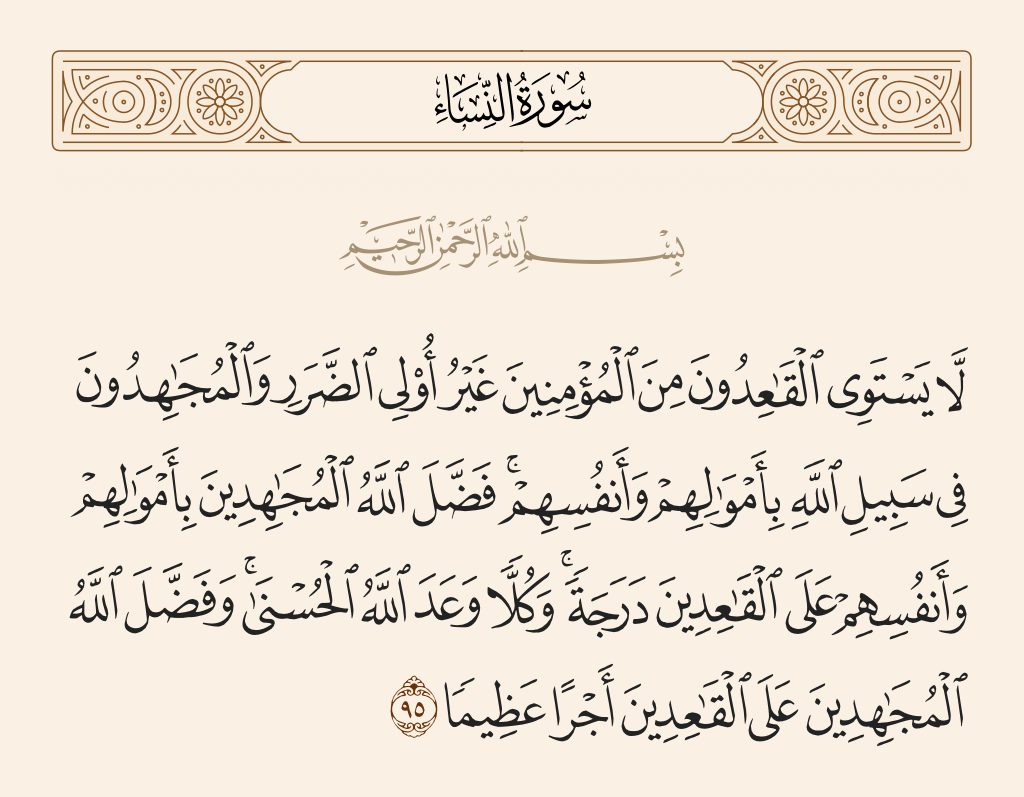 سُورَةُ النِّسَاءِ
بِسْمِ ٱللَّهِ ٱلرَّحْمَٰنِ ٱلرَّحِيمِ
لَّا يَسْتَوِى ٱلْقَٰعِدُونَ مِنَ ٱلْمُؤْمِنِينَ غَيْرُ أُو۟لِى ٱلضَّرَرِ وَٱلْمُجَٰهِدُونَ
فِى سَبِيلِ ٱللَّهِ بِأَمْوَٰلِهِمْ وَأَنفُسِهِمْ ۚ فَضَّلَ ٱللَّهُ ٱلْمُجَٰهِدِينَ بِأَمْوَٰلِهِمْ
وَأَنفُسِهِمْ عَلَى ٱلْقَٰعِدِينَ دَرَجَةً ۚ وَكُلًّا وَعَدَ ٱللَّهُ ٱلْحُسْنَىٰ ۚ وَفَضَّلَ ٱللَّهُ
ٱلْمُجَٰهِدِينَ عَلَى ٱلْقَٰعِدِينَ أَجْرًا عَظِيمًا ٩٥